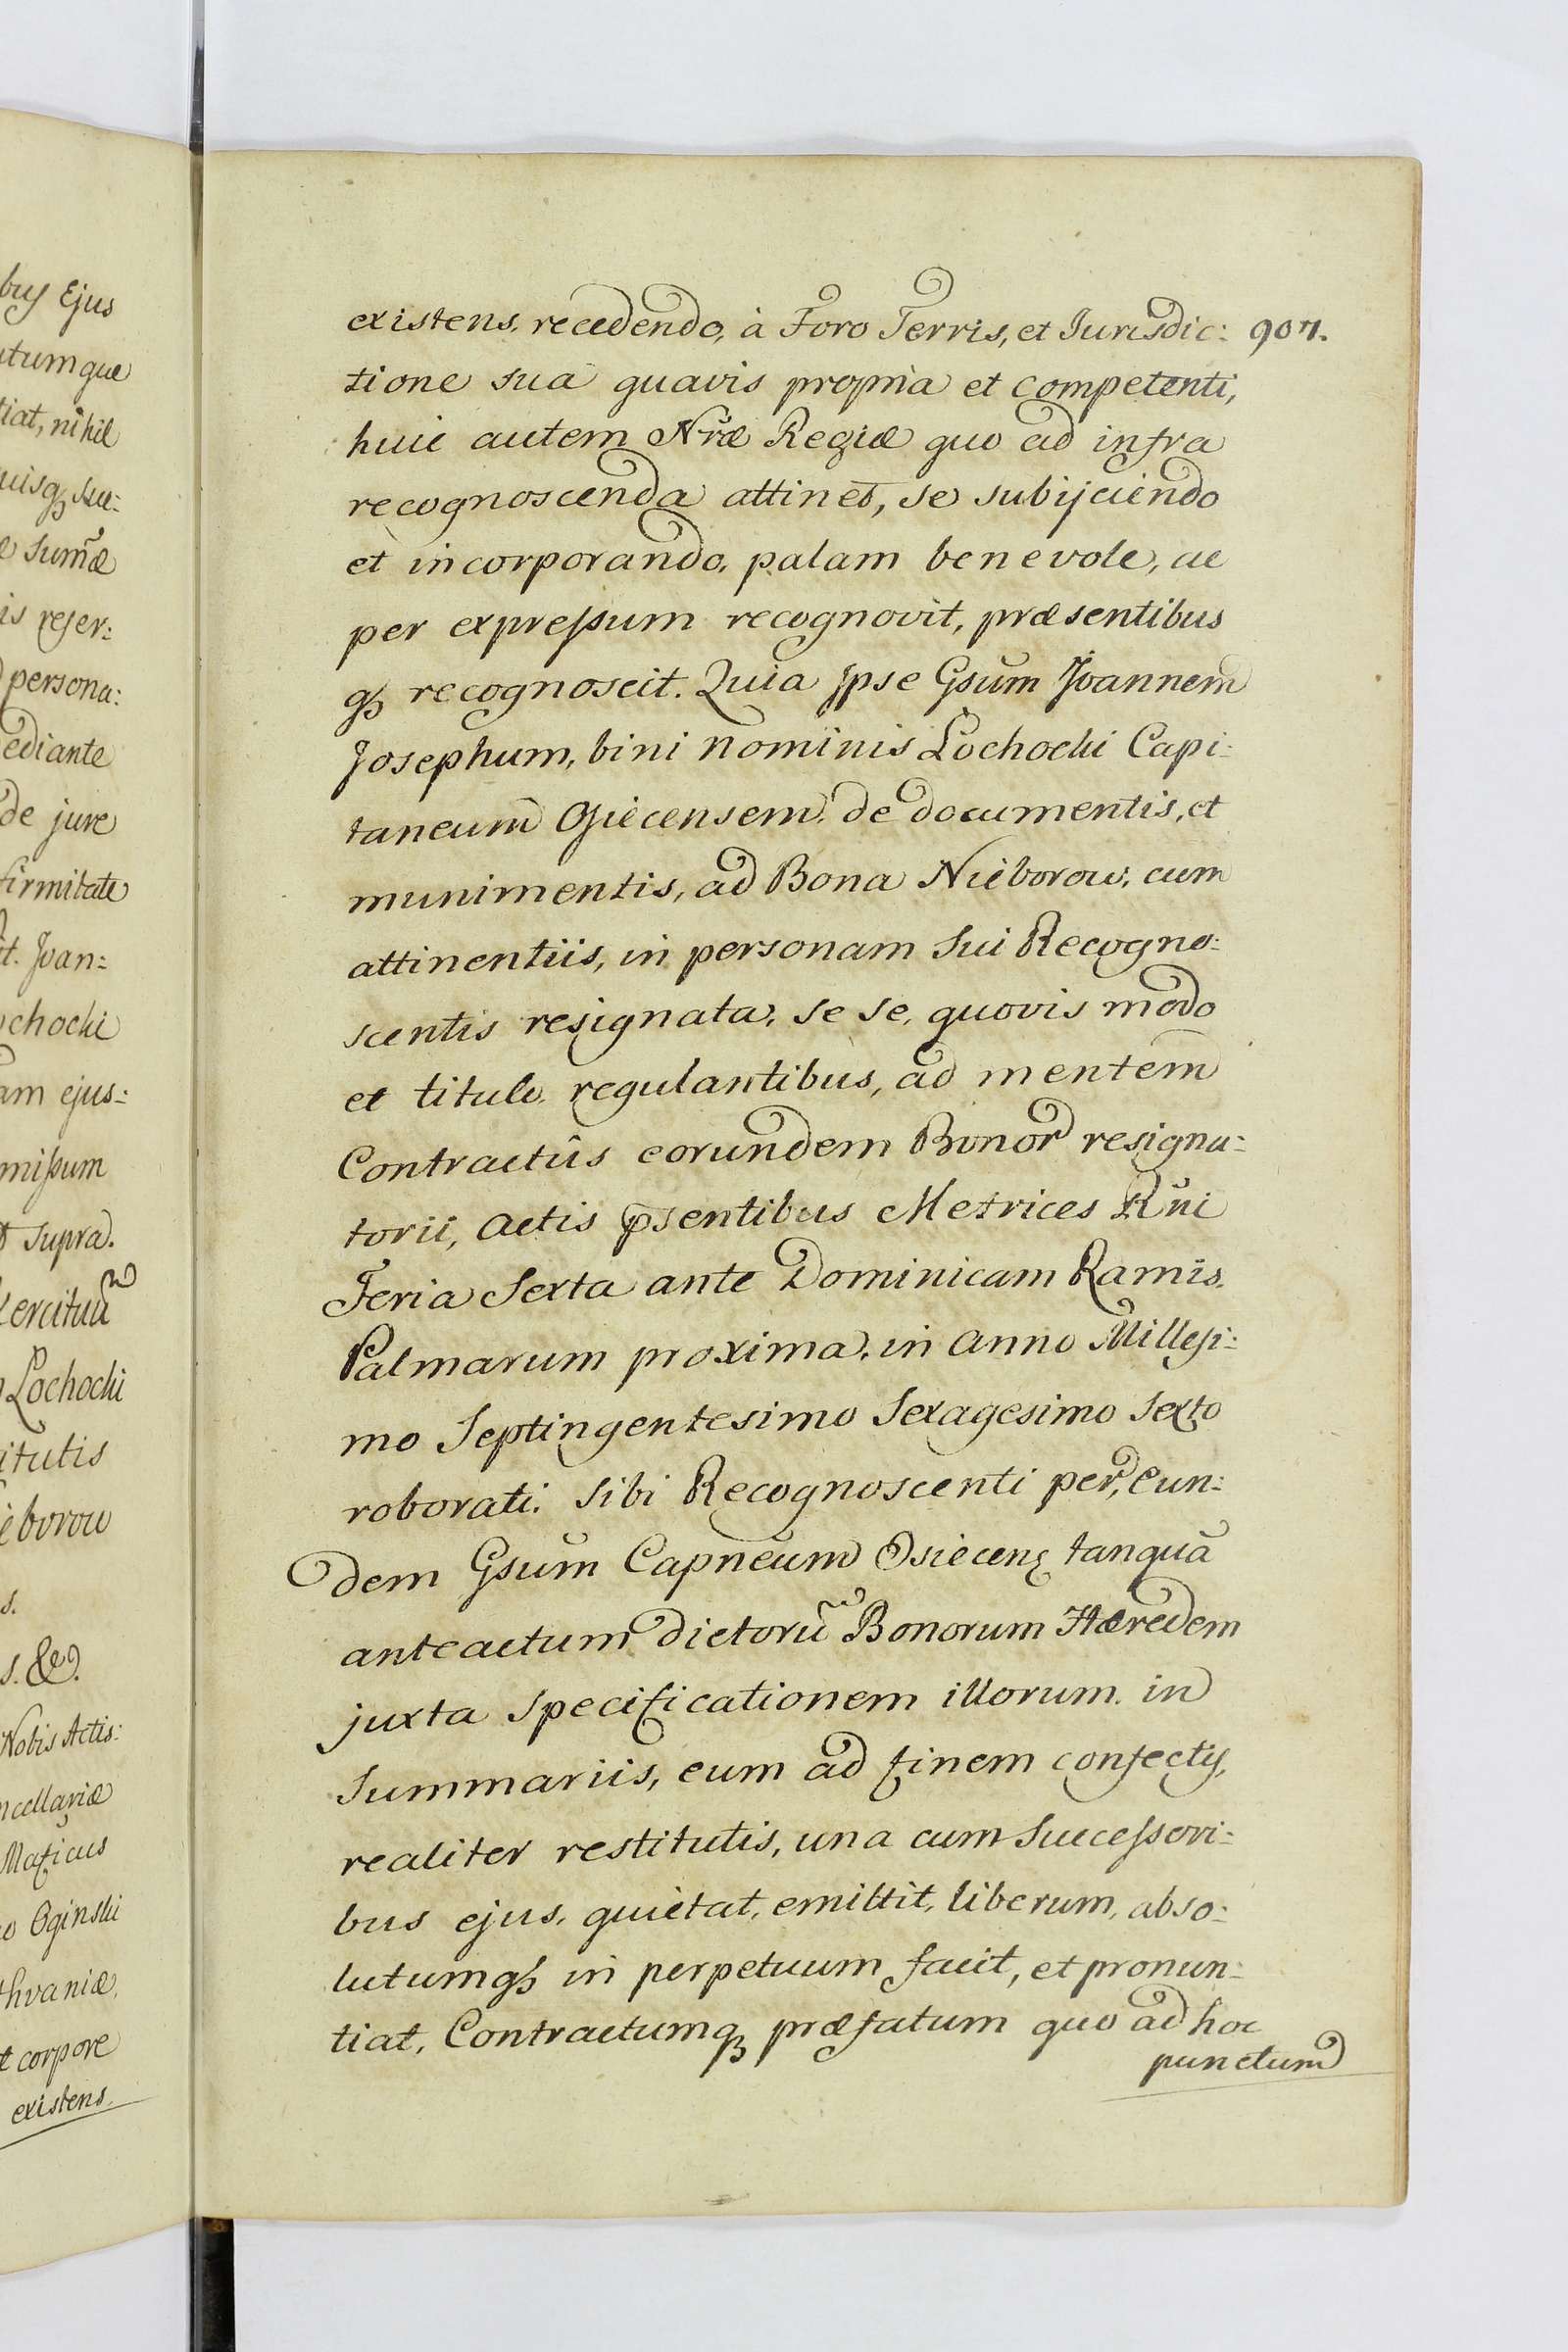 bus Ejus
utumque
tiat, nihil
uisq3 suc:
e Sum̃æ
is reser:
persona:
ediante
de jure
firmitate
t. Joan:
ochocki
am ejus:
missum
supra.
ercituũ
Lochocki
itutis
eborow
s.
s. &c.
Nobis Actis:
ncellariæ
Maficus
o Oginski
thvaniæ,
t corpore
existens.
existens, recedendo, à Foro Terris, et Jurisdic: 907.
tione sua quavis propria et competenti,
huic autem Nræ Regiæ quo ad infra
recognoscenda attinet, se subijciendo
et incorporando, palam benevole, ac
per expressum recognovit, præsentibus
q3 recognoscit. Quia Jpse Gsum Joannem
Josephum, bini nominis Lochocki Capi:
taneum Osiecensem, de documentis, et
munimentis, ad Bona Nieborow, cum
attinentiis, in personam sui Recogno:
scentis resignata, se se, quovis modo
et titulo regulantibus, ad mentem
Contractûs eorundem Bonor resigna:
torii, actis p̃sentibus Metrices Rñi
Feria Sexta ante Dominicam Ramis
Palmarum proxima, in anno Millesi:
mo Septingentesimo Sexagesimo Sexto
roborati. Sibi Recognoscenti per, eun:
dem Gsum Capneum Osiecen̄ tanquã
anteactum dictorũ Bonorum Hæredem
juxta Specificationem illorum in
Summariis, eum ad finem confectis,
realiter restitutis, una cum Successori:
bus ejus, quietat, emittit, liberum, abso:
lutumq3 in perpetuum facit, et pronun:
tiat, Contractumq3 præfatum quo ad hoc
punctum